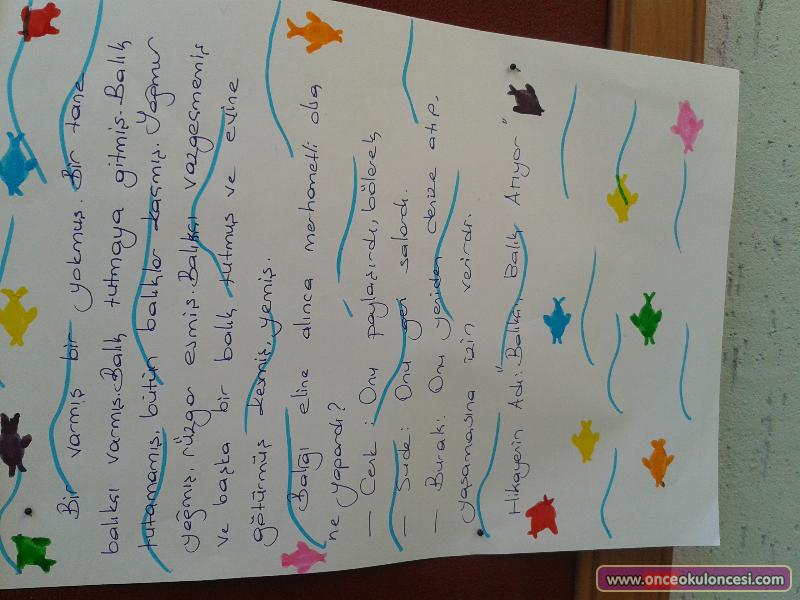 Bir varmış bir yokmuş. Bir tane
balıkçı varmış. Balık tutmaya gitmiş. Balık
tutamamış, bütün balıklar kaçmış. Yağmur
yağmış, rüzgar esmiş. Balıkçı vazgeçmemiş
ve başka bir balık tutmuş ve evine
götürmüş kesmiş, yemiş.
Balığı eline alınca merhametli olsa
ne yapardı?
— Cenk: Onu paylaşırdı, bölerek
— Sude: Onu geri salardı.
— Burak: Onu yeniden denize atıp,
yaşamasına izin verirdi.
Hikayenin Adı: "Balıkçı Balık Atıyor"
www.onceokuloncesi.com